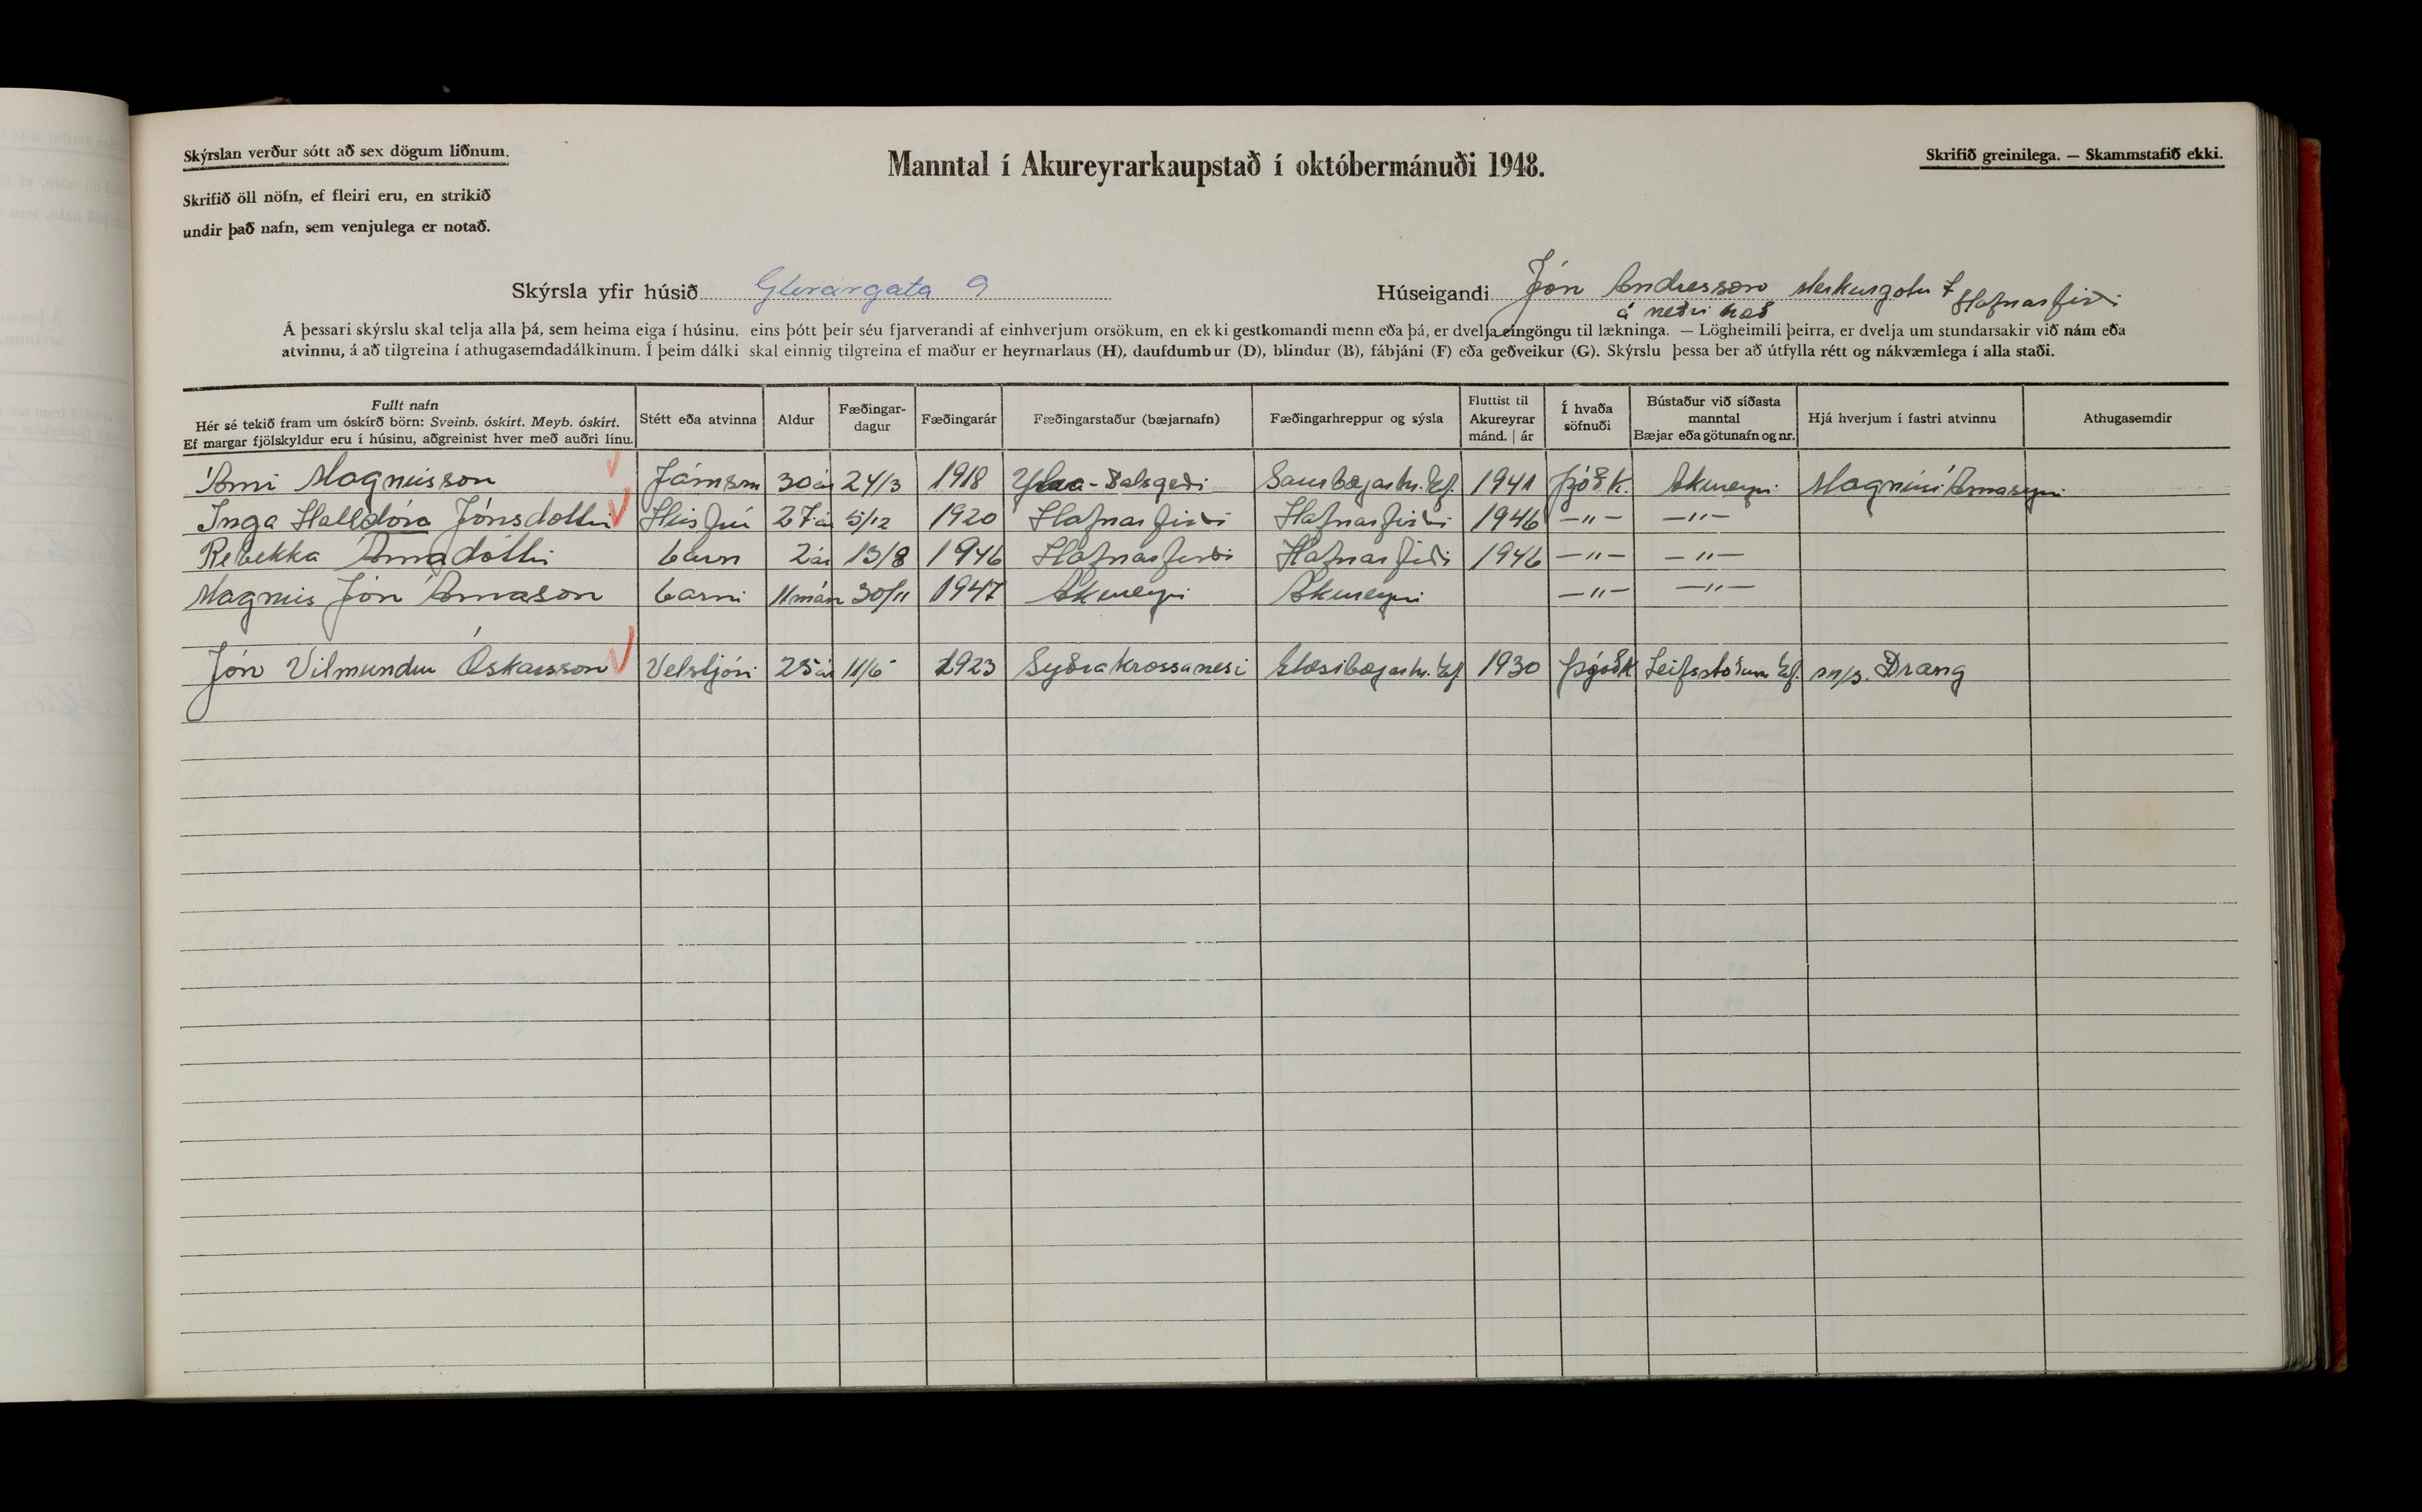 Skýrslan verður sótt að sex dögum liðnum.
Manntal í Akureyrarkaupstað í októbermánuði 1948.
Skrifið greinilega. — Skammstafið ekki.
Skrifið öll nöfn, ef fleiri eru, en strikið
undir það nafn, sem venjulega er notað.
Skýrsla yfir húsið Glerárgata 9
Húseigandi Jón Andresson Merkurgotu 7 Hafnarfirði
á neðri hæð
Á þessari skýrslu skal telja alla þá, sem heima eiga í húsinu, eins þótt þeir séu fjarverandi af einhverjum orsökum, en ekki gestkomandi menn eða þá, er dvelja eingöngu til lækninga. — Lögheimili þeirra, er dvelja um stundarsakir við nám eða
atvinnu, á að tilgreina í athugasemdadálkinum. Í þeim dálki skal einnig tilgreina ef maður er heyrnarlaus (H), daufdumbur (D), blindur (B), fábjáni (F) eða geðveikur (G). Skýrslu þessa ber að útfylla rétt og nákvæmlega í alla staði.
Fullt nafn
Hér sé tekið fram um óskírð börn: Sveinb. óskírt. Meyb. óskírt.
Ef margar fjölskyldur eru í húsinu, aðgreinist hver með auðri línu.
Stétt eða atvinna
Aldur
Fæðingar-
dagur
Fæðingarár
Fæðingarstaður (bæjarnafn)
Fæðingarhreppur og sýsla
Fluttist til
Akureyrar
mánd. | ár
Í hvaða
söfnuði
Bústaður við síðasta
manntal
Bæjar eða götunafn og nr.
Hjá hverjum í fastri atvinnu
Athugasemdir
Árni Magnússon Járnsm 30 ár 24/3 1918 Saurbæjarhr. Eyf. 1941 Þjóðk. Akureyri Magnúsi Árnasyni
Inga Halldóra Jónsdóttir Húsfrú 27 ár 5/12 1920 Hafnarfirði Hafnarfirði 1946 —"— —"—
Rebekka Árnadóttir barn 2 ár 13/8 1946 Hafnarfirði Hafnarfirði 1946 —"— —"—
Magnús Jón Árnason barni 11 mán 30/11 1947 Akureyri Akureyri —"— —"—
Jón Vilmundur Óskarsson Velstjóri 25 ár 11/6 1923 Syðrakrossanesi Glæsibæjarhr. Eyf 1930 Þjóðk. Leifstöðum Eyf. m/s. Drang